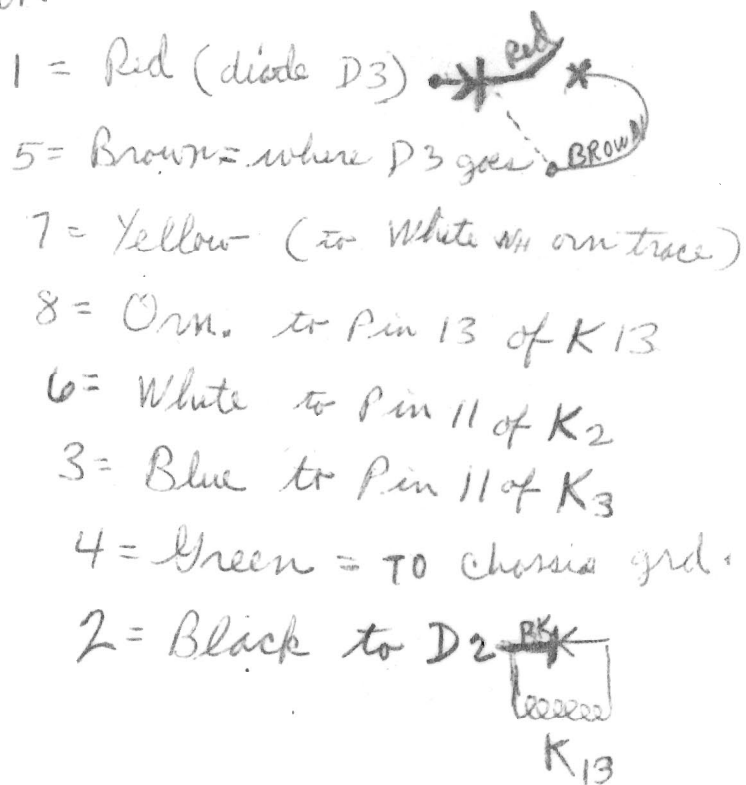 1 = Red (diode D3) Red
5 = Brown = where D3 goes BROWN
7 = Yellow (to White WH orn trace)
8 = Orn. to Pin 13 of K13
6 = White to Pin 11 of K2
3 = Blue to Pin 11 of K3
4 = Green = TO chassis grd.
2 = Black to D2 BK
K13